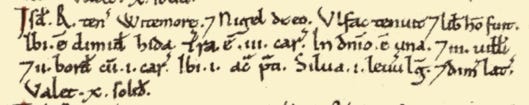 Isd. R. ten' Witemore. ⁊ Nigel de eo. Vlfac tenuit ⁊ lib hō fuit.
Ibi .ē dimid hida. Tra .ē .iii. car. In dnīo .ē una. ⁊ iii. uilli
⁊ ii. bord cū .i. car. Ibi .i. ac p̄ti. Silua .i. leuu lḡ. ⁊ dim lat.
Valet .x. solid.